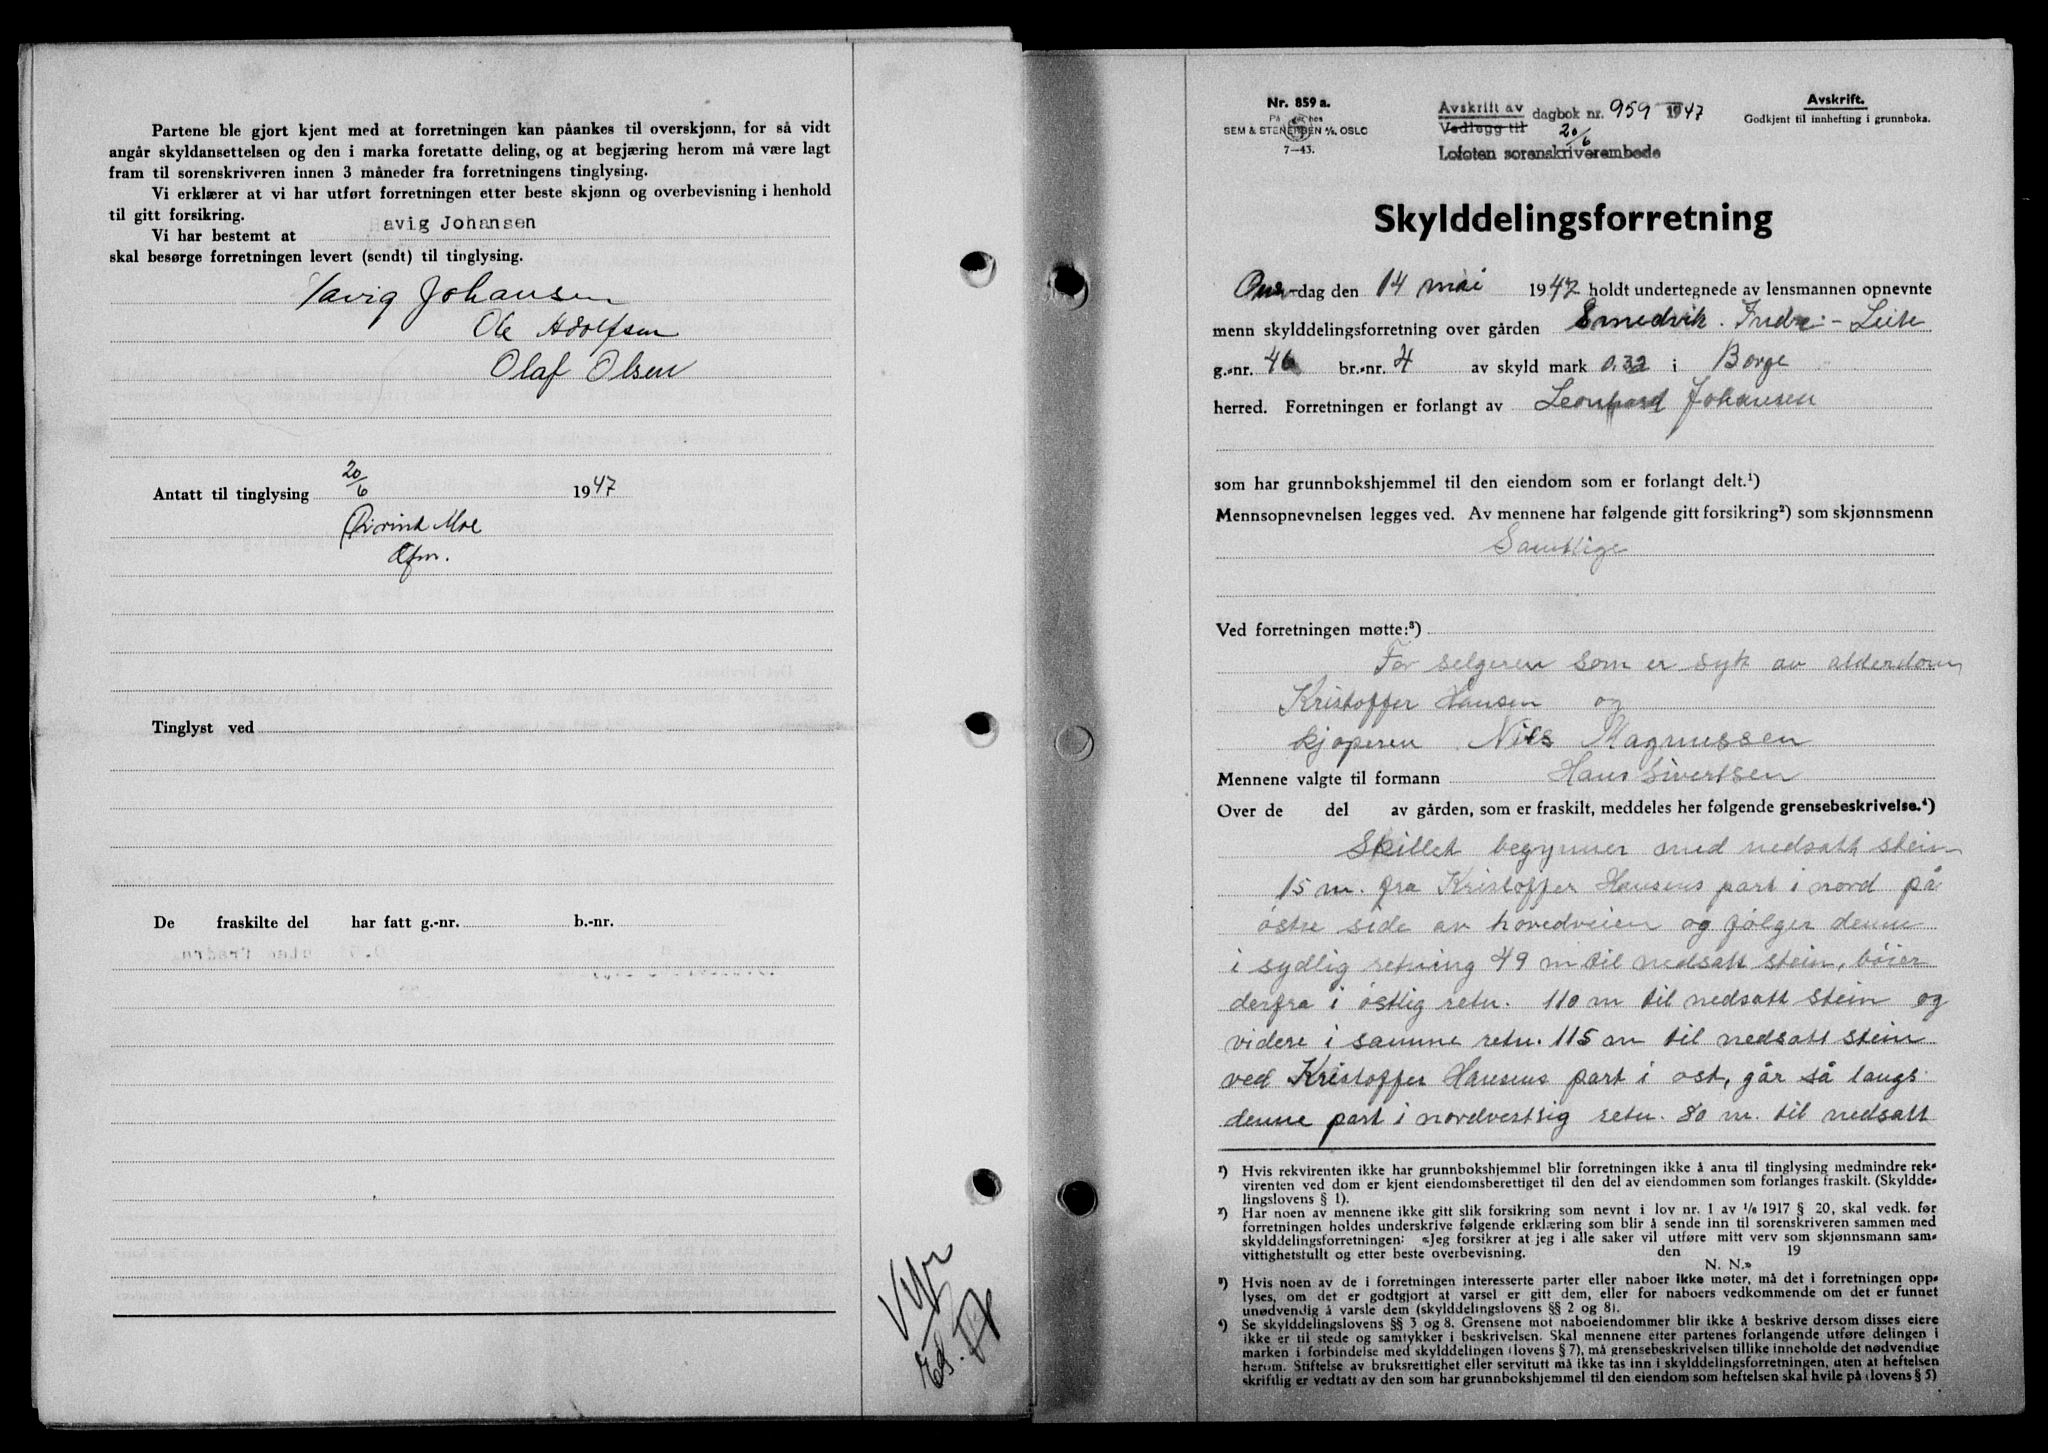 Partene ble gjort kjent med at forretningen kan påankes til overskjønn, for så vidt
angår skyldansettelsen og den i marka foretatte deling, og at begjæring herom må være lagt
fram til sorenskriveren innen 3 måneder fra forretningens tinglysing.
Vi erklærer at vi har utført forretningen etter beste skjønn og overbevisning i henhold
til gitt forsikring.
Vi har bestemt at Havig Johansen
skal besørge forretningen levert (sendt) til tinglysing.
Havig Johansen
Ole Adolfsen
Olaf Olsen
Antatt til tinglysing 20/6 1947
Øivind Moe
Tinglyst ved
De fraskilte del har fatt g.-nr. b.-nr.
Nr. 859 a.
SEM & STENERSEN A/S, OSLO
7—43.
Avskrift av
Vedlegg til dagbok nr. 959 1947
20/6
Lofoten sorenskriverembede
Avskrift.
Godkjent til innhefting i grunnboka.
Skylddelingsforretning
Ons-dag den 14 mai 1947 holdt undertegnede av lensmannen opnevnte
menn skylddelingsforretning over gården Smedvik. Indre - Leite
g.-nr. 46 br.-nr. 4 av skyld mark 0.32 i Borge
herred. Forretningen er forlangt av Leonhard Johansen
som har grunnbokshjemmel til den eiendom som er forlangt delt.¹)
Mennsopnevnelsen legges ved. Av mennene har følgende gitt forsikring²) som skjønnsmenn
Samtlige
Ved forretningen møtte:³)
For selgeren som er syk av alderdom
Kristoffer Hansen og
kjøperen Nils Magnussen
Mennene valgte til formann Hans Sivertsen
Over de del av gården, som er fraskilt, meddeles her følgende grensebeskrivelse.⁴)
Skillet begynner med nedsatt stein
15 m. fra Kristoffer Hansens part i nord på
østre side av hovedveien og følger denne
i sydlig retning 49 m til nedsatt stein, bøier
derfra i østlig retn. 110 m til nedsatt stein og
videre i samme retn. 115 m til nedsatt stein
ved Kristoffer Hansens part i øst, går så langs
denne part i nordvestlig retn. 80 m. til nedsatt
¹) Hvis rekvirenten ikke har grunnbokshjemmel blir forretningen ikke å anta til tinglysing medmindre rek-
virenten ved dom er kjent eiendomsberettiget til den del av eiendommen som forlanges fraskilt. (Skyldde-
lingslovens § 1).
²) Har noen av mennene ikke gitt slik forsikring som nevnt i lov nr. 1 av 1/6 1917 § 20, skal vedk. før
forretningen holdes underskrive følgende erklæring som blir å sende inn til sorenskriveren sammen med
skylddelingsforretningen: «Jeg forsikrer at jeg i alle saker vil utføre mitt verv som skjønnsmann sam-
vittighetsfullt og etter beste overbevisning. den 19
N. N.»
³) Hvis noen av de i forretningen interesserte parter eller naboer ikke møter, må det i forretningen opp-
lyses, om det er godtgjort at varsel er gitt dem, eller for naboers vedkommende om det er funnet
unødvendig å varsle dem (skylddelingslovens §§ 2 og 8).
⁴) Se skylddelingslovens §§ 3 og 8. Grensene mot naboeiendommer blir ikke å beskrive dersom disses eiere
ikke er til stede og samtykker i beskrivelsen. Skal mennene etter partenes forlangende utføre delingen i
marken i forbindelse med skylddelingen (lovens § 7), må grensebeskrivelsen tillike inneholde det nødvendige
herom. Stiftelse av bruksrettighet eller servitutt må ikke tas inn i skylddelingsforretningen, uten at heftelsen
skriftlig er vedtatt av den som har grunnbokshjemmel til den eiendom som heftelsen skal hvile på (lovens § 5)